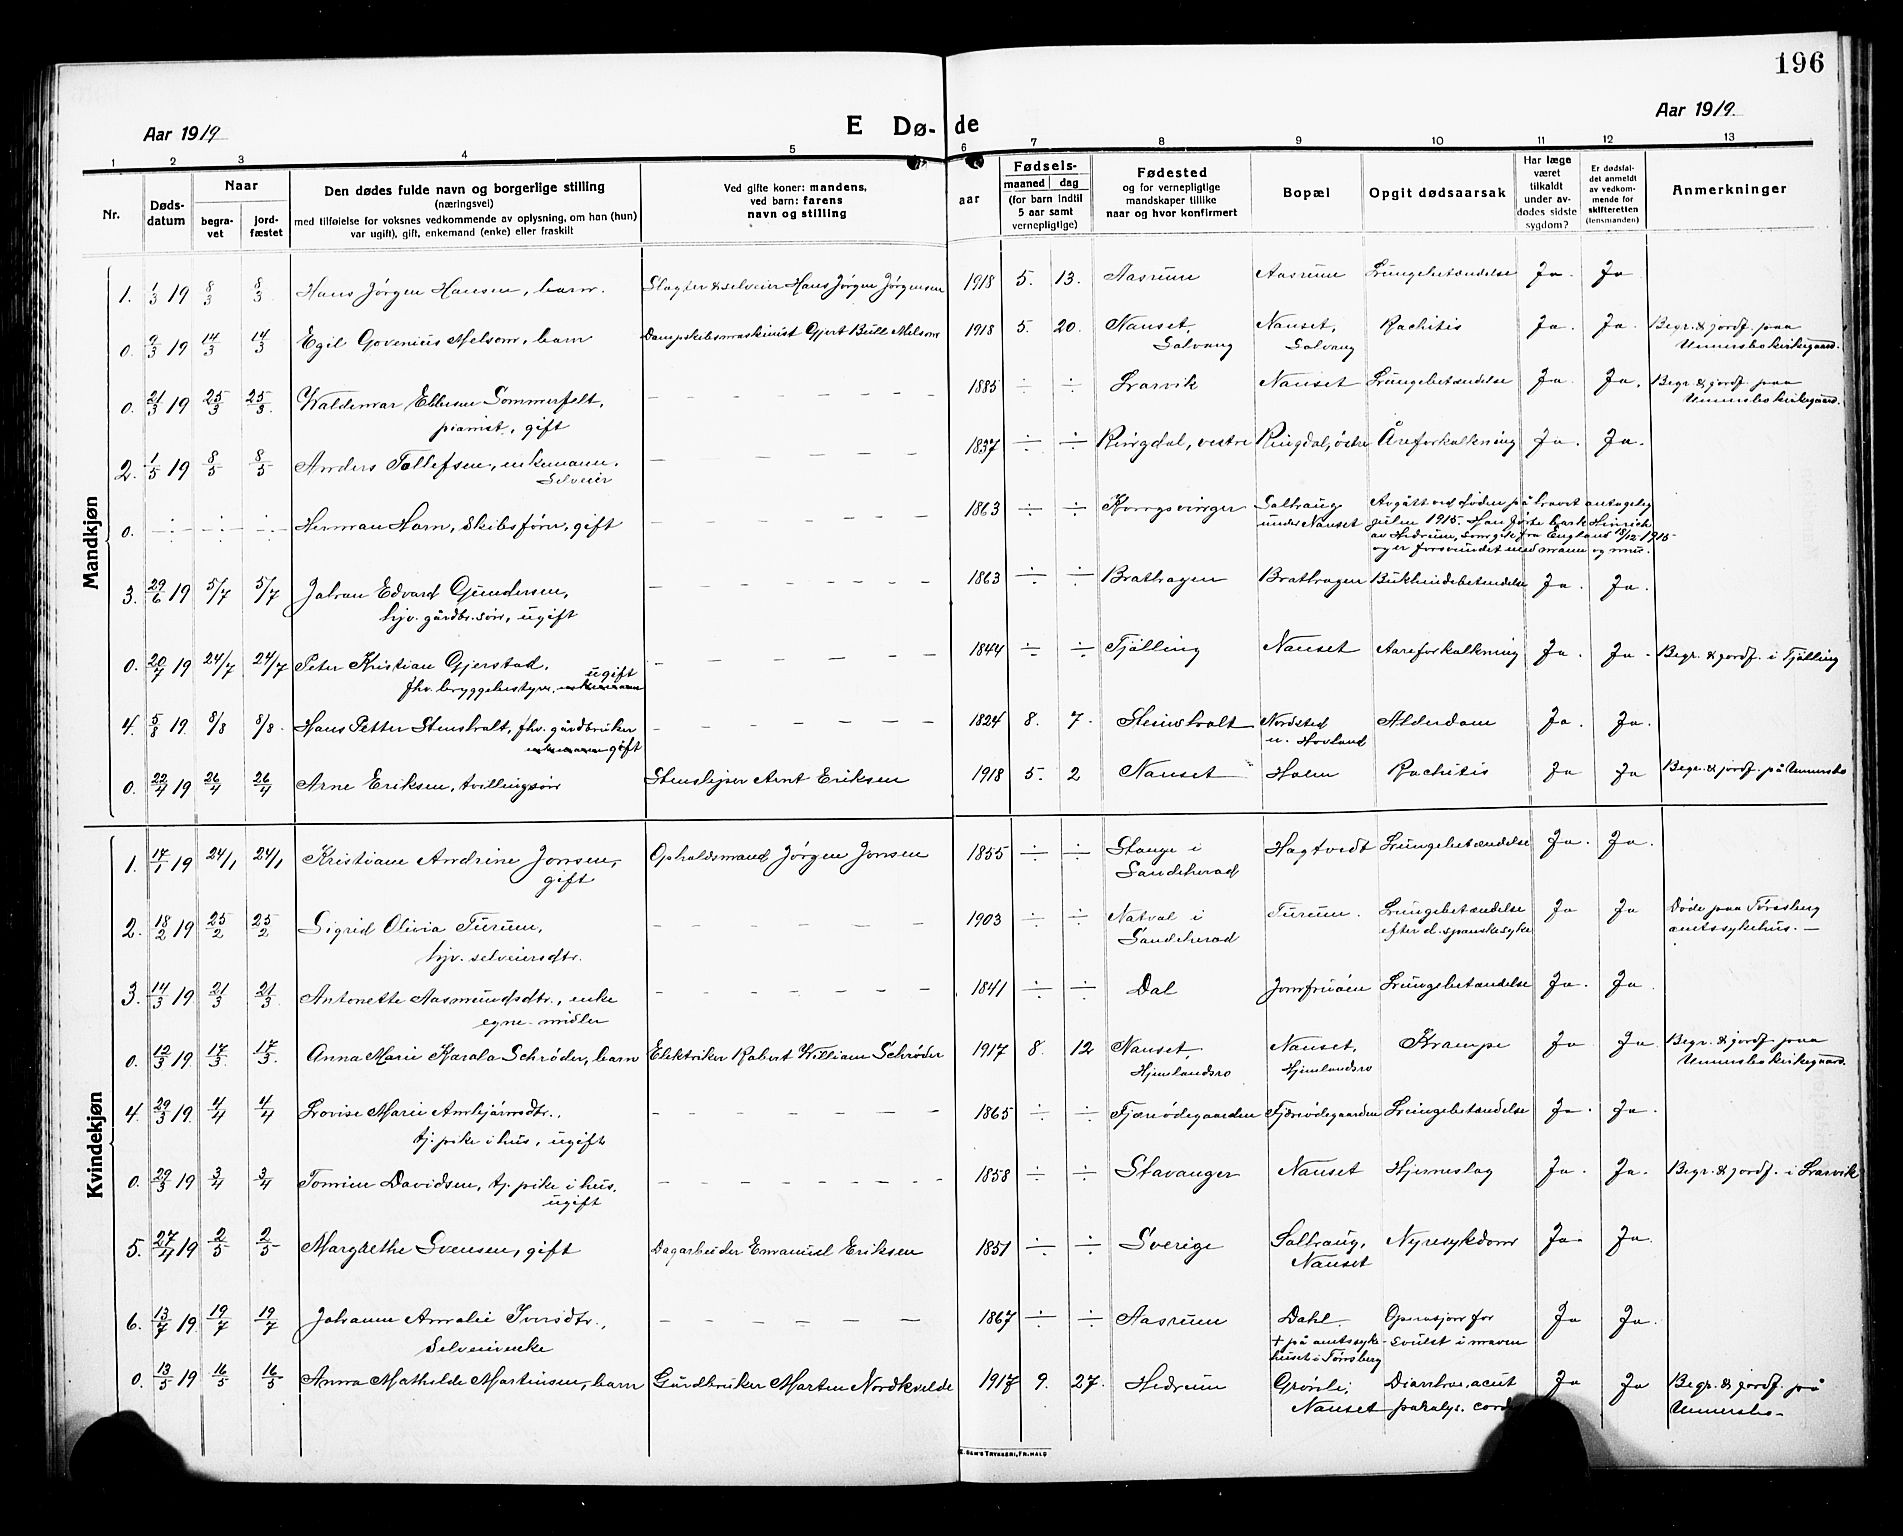 196
Aar 1919
E Dø- de
Aar 1919.
1 2 3 4 5 6 7 8 9 10 11 12 13
Nr.
Dødsdatum
Naar
begravet
jordfæstet
Den dødes fulde navn og borgerlige stilling
(næringsvei)
med tilføielse for voksnes vedkommende av oplysning, om han (hun)
var ugift), gift, enkemand (enke) eller fraskilt
Ved gifte koner: mandens,
ved barn: farens
navn og stilling
Fødsels-
aar
maaned dag
(for barn indtil
5 aar samt
vernepligtige)
Fødested
og for vernepligtige
mandskaper tillike
naar og hvor konfirmert
Bopæl
Opgit dødsaarsak
Har læge
været
tilkaldt
under av-
dødes sidste
sygdom?
Er dødsfal-
det anmeldt
av vedkom-
mende for
skifteretten
(lensmanden)
Anmerkninger
Mandkjøn
1. 1/3 19 8/3 8/3 Hans Jørgen Hansen, barn. Slagter & selveier Hans Jørgen Jørgensen 1918 5. 13. Aasrum Aasrum Lungebetændelse Ja. Ja
0. 9/3 19 14/3 14/3 Egil Govenius Melsom, barn Dampskibsmaskinist Gjert Bull Melsom 1918 5. 20. Nanset, Nanset, Rachitis Ja. Ja. Begr. & jordf. paa
Solvang Solvang Undersbo kirkegaard.
0. 21/3 19 25/3 25/3 Waldemar Ebbesen Sommerfelt, — — — 1885 ÷ ÷ Larvik Nanset Lungebetændelse Ja. Ja. Begr. & jordf. paa
pianist, gift Undersbo kirkegaard.
2. 1/5 19 8/5 8/5 Anders Tollefsen, enkemann. — — — 1837 ÷ ÷ Ringdal, vestre Ringdal, östre Åreforkalkning Ja. Ja.
Selveier
0. ÷ ÷ ÷ Herman Horn, Skibsfører, gift — — — 1863 ÷ ÷ Kongsvinger Solhaug Avgått ved døden på havet antagelig
under Nanset julen 1915. Han førte bark Heinrich
av Hedrum, som gik fra England 13/12 1915
og er forsvundet med mann og mus.
3. 29/6 19 5/7 5/7 Johan Edvard Gundersen, — — — 1863 ÷ ÷ Brathagen Brathagen Bukhindebetendelse Ja. Ja.
hjv. gårdbr. sön, ugift
0. 20/7 19 24/7 24/7 Peter Kristian Gjerstad, — — — 1844 ÷ ÷ Tjölling Nanset Aareforkalkning Ja. Ja. Begr. & jordf. i Tjölling
ugift
fhv. bryggebestyrer enkemann
4. 5/8 19 8/8 8/8. Hans Petter Stensholt, fhv. gårdbruker — — — 1824 8. 7. Steinsholt Nordsted Alderdom Ja. Ja.
enkemann gift n. Hovland
0. 22/4 19 26/4 26/4 Arne Eriksen, tvillingsön Stenslejper Arnt Eriksen 1918 5. 2 Nanset Holm Rachitis Ja Ja Begr. & jordf. på Undersbo
Kvindekjøn
1. 17/1 19 24/1 24/1 Kristiane Andrine Jonsen, Opholdsmand Jörgen Jonsen 1855 ÷ ÷ Stange i Hagtvedt Lungebetændelse Ja. Ja.
gift Sandeherad
2. 18/2 19 25/2 25/2 Sigrid Olivia Furum, — — 1903 ÷ ÷ Natval i Furum. Lungebetændelse Ja Ja Døde paa Tønsberg
hjv. selveiersdtr. Sandeherad efter d. spanske syke amtssykehus. —
3. 14/3 19 21/3 21/3. Antonette Aasmundsdtr., enke — — — 1841 ÷ ÷ Dal Jomfruöen Lungebetændelse Ja. Ja.
egne midler
0. 12/3 19 17/3. 17/3. Anna Marie Karola Schröder, barn Elektriker Robert William Schröder 1917 8. 12 Nanset, Nanset, Krampe Ja Ja. Begr. & jordf. paa
Hjemlandsro Hjemlandsro Undersbo kirkegaard.
4. 29/3 19. 4/4 4/4 Lovise Marie Arnbjörnsdtr., — — — 1865 ÷ ÷ Fjæreödegaarden Fjæreödegaarden Lungebetændelse Ja. Ja.
tj. pike i hus, ugift
0. 29/3 19 3/4 3/4 Tomine Davidsen, tj. pike i hus, — — — 1858 ÷ ÷ Stavanger Nanset Hjerneslag Ja. Ja. Begr. & jordf. i Larvik
ugift
5. 27/4 19 2/5 2/5 Margrethe Svensen, gift Dagarbeider Emanuel Eriksen 1851 ÷ ÷ Sverige Solhaug, Nyresykdom Ja. Ja.
Nanset
6. 13/7 19. 19/7 19/7 Johanne Amalie Iversdtr., — — — 1867 ÷ ÷ Aasrum Dahl. Operasjon for Ja Ja.
Selveierenke + på amtssyke- svulst i maven
huset i Tønsberg
0. 13/5 19 16/5 16/5 Anna Mathilde Martinsen, barn Gårdbruker Marten Nordkvelde 1917 9. 27. Hedrum Grönli, Diarrhoe, acut Ja Ja Begr. & jordf. på
Nanset paralys. cordis Undersbo.
E. SEM'S TRYKKERI, FR.HALD